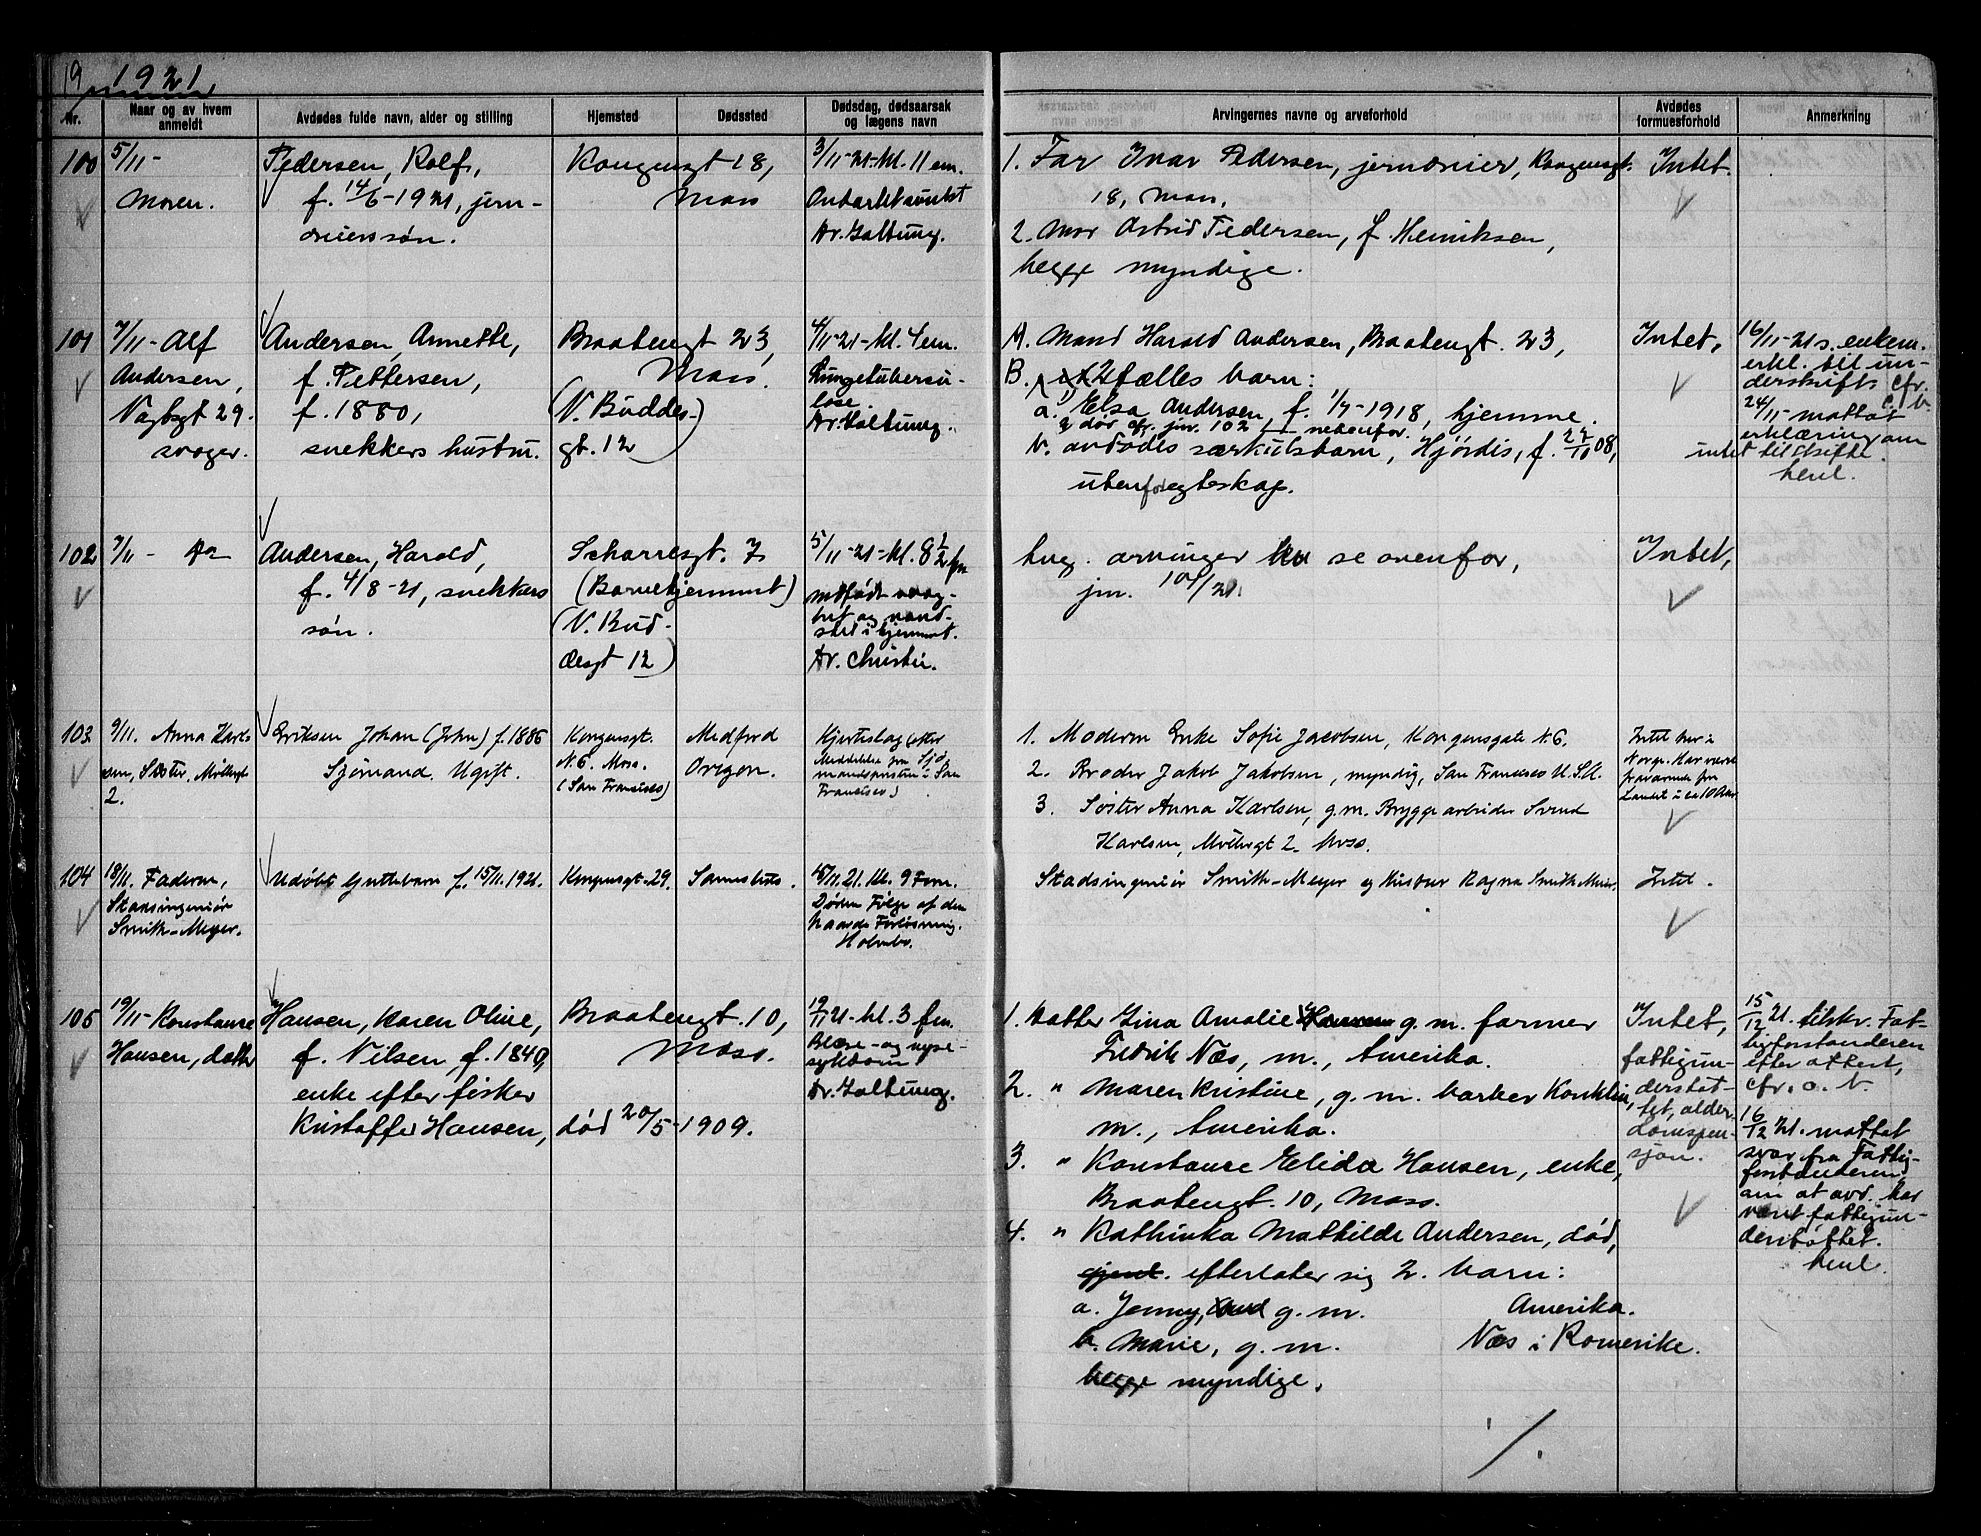 19 1921
Nr.
Naar og av hvem anmeldt
Avdødes fulde navn, alder og stilling
Hjemsted
Dødssted
Dødsdag, dødsaarsak og lægens navn
Arvingernes navne og arveforhold
Avdødes formuesforhold
Anmerkning
100
5/11-
Moren.
Pedersen, Rolf,
f. 14/6-1921, jern-
søn.
Kongensgt 18,
Moss
3/11-21-kl. 11 em.
Dr. Galtung.
1. Far Ivar Pedersen, Kongensgt.
18, Moss,
2. Mor Astrid Pedersen, f. Henriksen,
begge myndige.
Intet.
101
7/11- Alf
Andersen,
Vogtsgt 29.
svoger.
Andersen, Annette,
f. Pettersen,
f. 1880,
snekkers hustru.
Braatengt 23,
Moss.
(V. Buddes-
gt. 12)
4/11-21-kl. 4 em.
Lungetuberku-
lose.
Dr. Galtung.
A. Mand Harald Andersen, Braatengt. 23,
B. 2 fælles barn:
a. Elsa Andersen, f. 1/7-1918, hjemme.
død cfr. jnr. 102 nedenfor.
b. avdødes særkulsbarn, Hjørdis, f. 08,
utenfor egteskap.
Intet,
16/11-21 s. enkem.
erkl. til un-
derskrift cfr.
c. b.
24/11- mottat
erklæring om
intet til skifte.
henl.
102
7/11- Do
Andersen, Harald,
f. 4/8-21, snekkers
søn.
Scharresgt. 7
(Barnehjemmet)
(V. Bud-
desgt 12)
5/11-21-kl. 8 1/2 fm
medfødt
Dr. Christie.
arvinger se ovenfor,
jnr. 101/21.
Intet,
103
9/11. Anna Karl-
sen, Søster, Møllergt
2.
Eriksen Johan (John) f. 1886
Sjømand. Ugift.
Kongensgt.
N. 6. Moss.
(San Francisco)
Medford
Oregon.
Hjerteslag (efter
Meddelelse fra Sjø-
mandspresten i San
Francisco)
1. Moderen Enke Sofie Jacobsen, Kongensgate N. 6.
2. Broder Jakob Jakobsen, myndig, San Francisco U.S.A.
3. Søster Anna Karlsen, g.m. Bryggearbeider Svend
Karlsen, Møllergt 2. Moss.
Intet her i
Norge. Har været
fraværende fra
Landet i ca 10 Aar
104
18/11. Faderen,
Stadsingeniør
Smith-Meyer.
Udøbt Guttebarn f. 15/11.1921.
Kongensgt. 29.
Sammesteds.
15/11.21. Kl. 9 Form.
Døden Følge af den
haarde Forløsning.
Holmbo.
Stadsingeniør Smith-Meyer og Hustru Ragna Smith-Meier.
Intet.
105
19/11- Konstance
Hansen, datter
Hansen, Karen Oline,
f. Nilsen, f. 1840,
enke efter fisker
Kristoffer Hansen, død 20/5-1909.
Braatengt. 10,
Moss.
19/11 21-kl. 3 fm.
Blære- og nyre-
sykdom
Dr. Galtung.
1. Datter Gina Amalie Hansen g. m. farmer
Fredrik Næs, m., Amerika.
2. " Maren Kristine, g. m. barber Konklin,
m., Amerika.
3. " Konstance Elida Hansen, enke,
Braatengt. 10, Moss.
4. " Kathinka Mathilde Andersen, død,
efterlater sig 2. barn:
a. Jenny, g. m. Amerika.
b. Marie, g. m. Næs i Romerike.
begge myndige.
Intet,
fattigun-
derstøt-
tet, alder-
domspen-
sjon.
15/12 21. tilskr. Fat-
tigforstanderen
efter attest,
cfr. c. b.
16/12 21. mottat
svar fra Fattig-
forstanderen
om at avd. har
været fattigun-
derstøttet.
henl.
./.